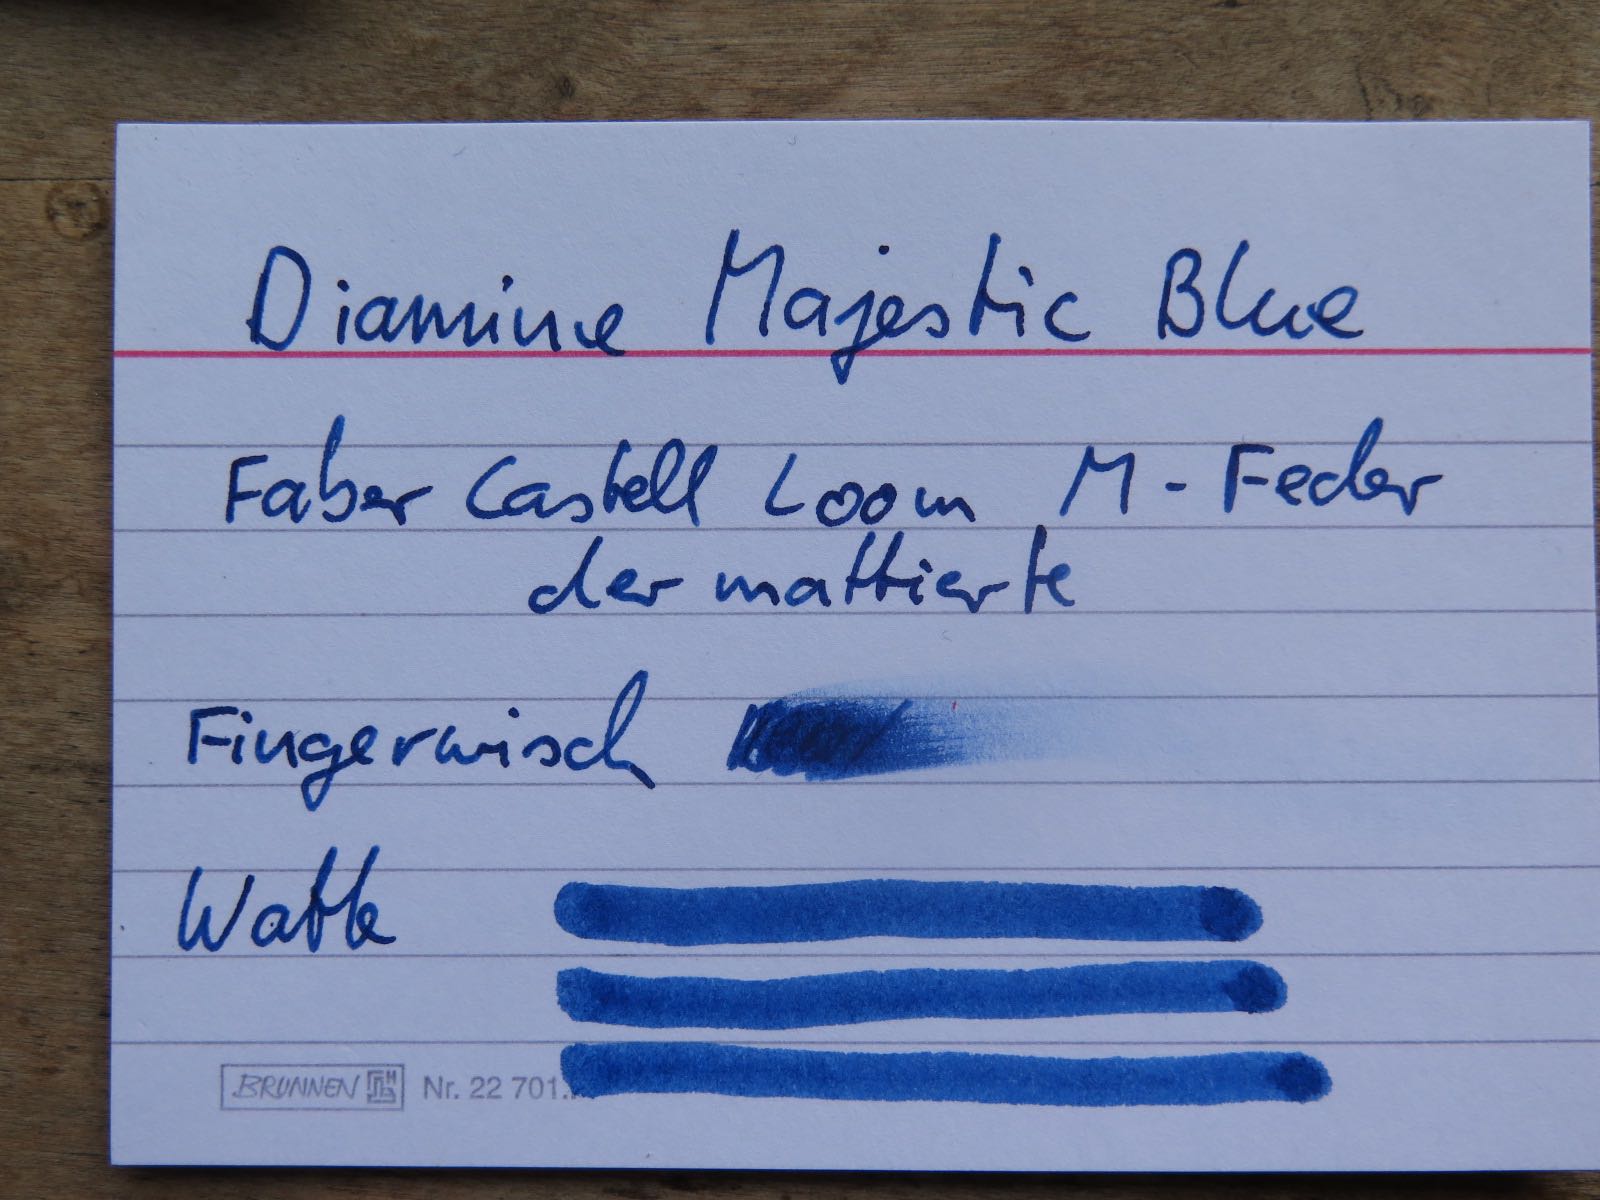 Diamine Majestic Blue
Faber Castell Loom M-Feder
der mattierte
Fingerwisch
Watte
BRUNNEN Nr. 22 701.